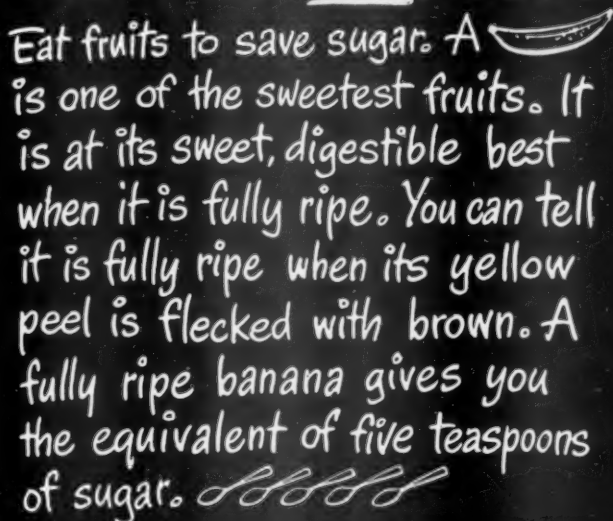 Eat fruits to save sugar. A
is one of the sweetest fruits. It
is at its sweet, digestible best
when it is fully ripe. You can tell
it is fully ripe when its yellow
peel is flecked with brown. A
fully ripe banana gives you
the equivalent of five teaspoons
of sugar.